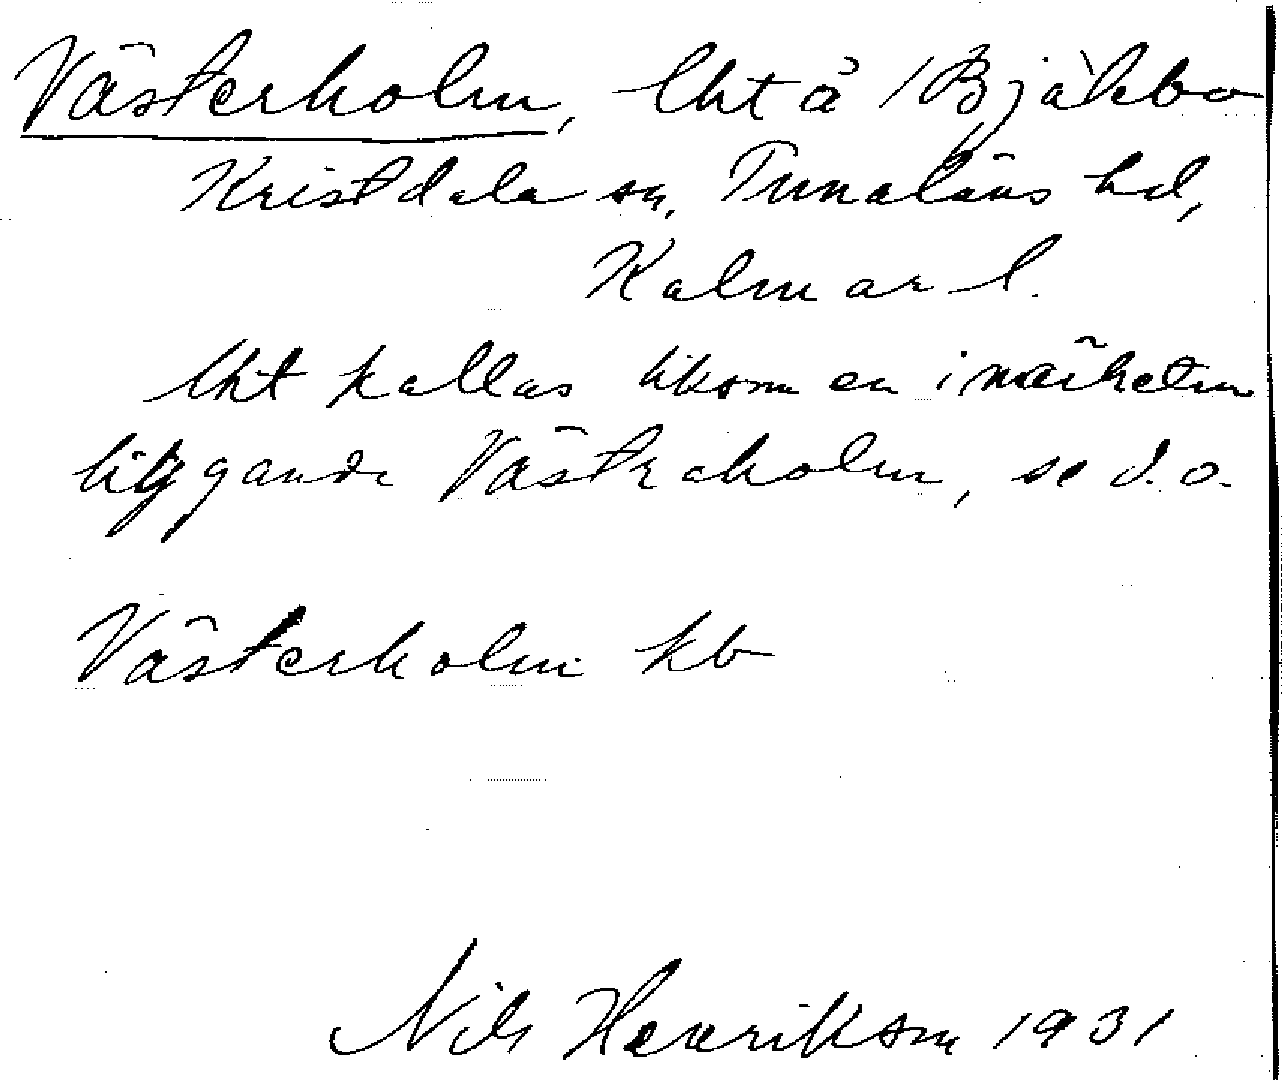 Västerholm, Lht å /Bjälebo
Kristdala sn, Tunaläns hd,
Kalmar l.
Lht kallas liksom en i närheten
liggande Västraholm, se d.o.
Västerholm kb
Nils Henrikson 1931